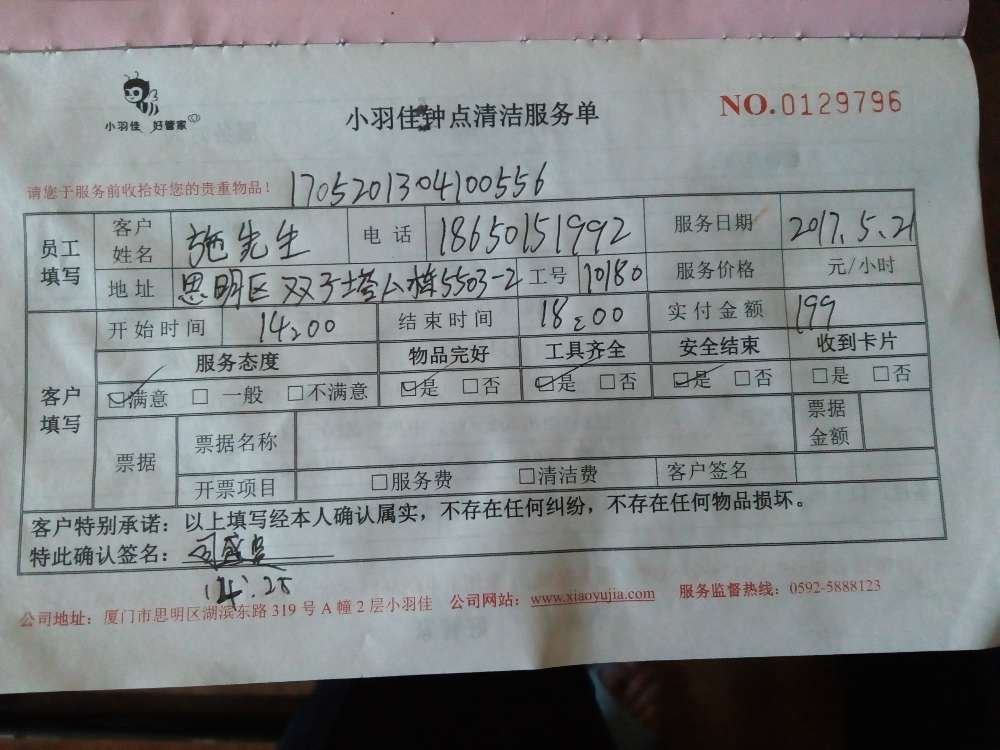 小羽佳 好管家
小羽佳钟点清洁服务单
NO.0129796
请您于服务前收拾好您的贵重物品！ 1705201304100556
员工填写 客户姓名 施先生 电话 18650151992 服务日期 2017.5.21
地址 思明区双子塔公楼5503-2 工号 10180 服务价格 元/小时
客户填写 开始时间 14:00 结束时间 18:00 实付金额 199
服务态度 物品完好 工具齐全 安全结束 收到卡片
☑满意 □一般 □不满意 ☑是 □否 ☑是 □否 ☑是 □否 □是 □否
票据 票据名称 票据金额
开票项目 □服务费 □清洁费 客户签名
客户特别承诺：以上填写经本人确认属实，不存在任何纠纷，不存在任何物品损坏。
特此确认签名：
14:25
公司地址：厦门市思明区湖滨东路 319 号 A 幢 2 层小羽佳 公司网站：www.xiaoyujia.com 服务监督热线：0592-5888123